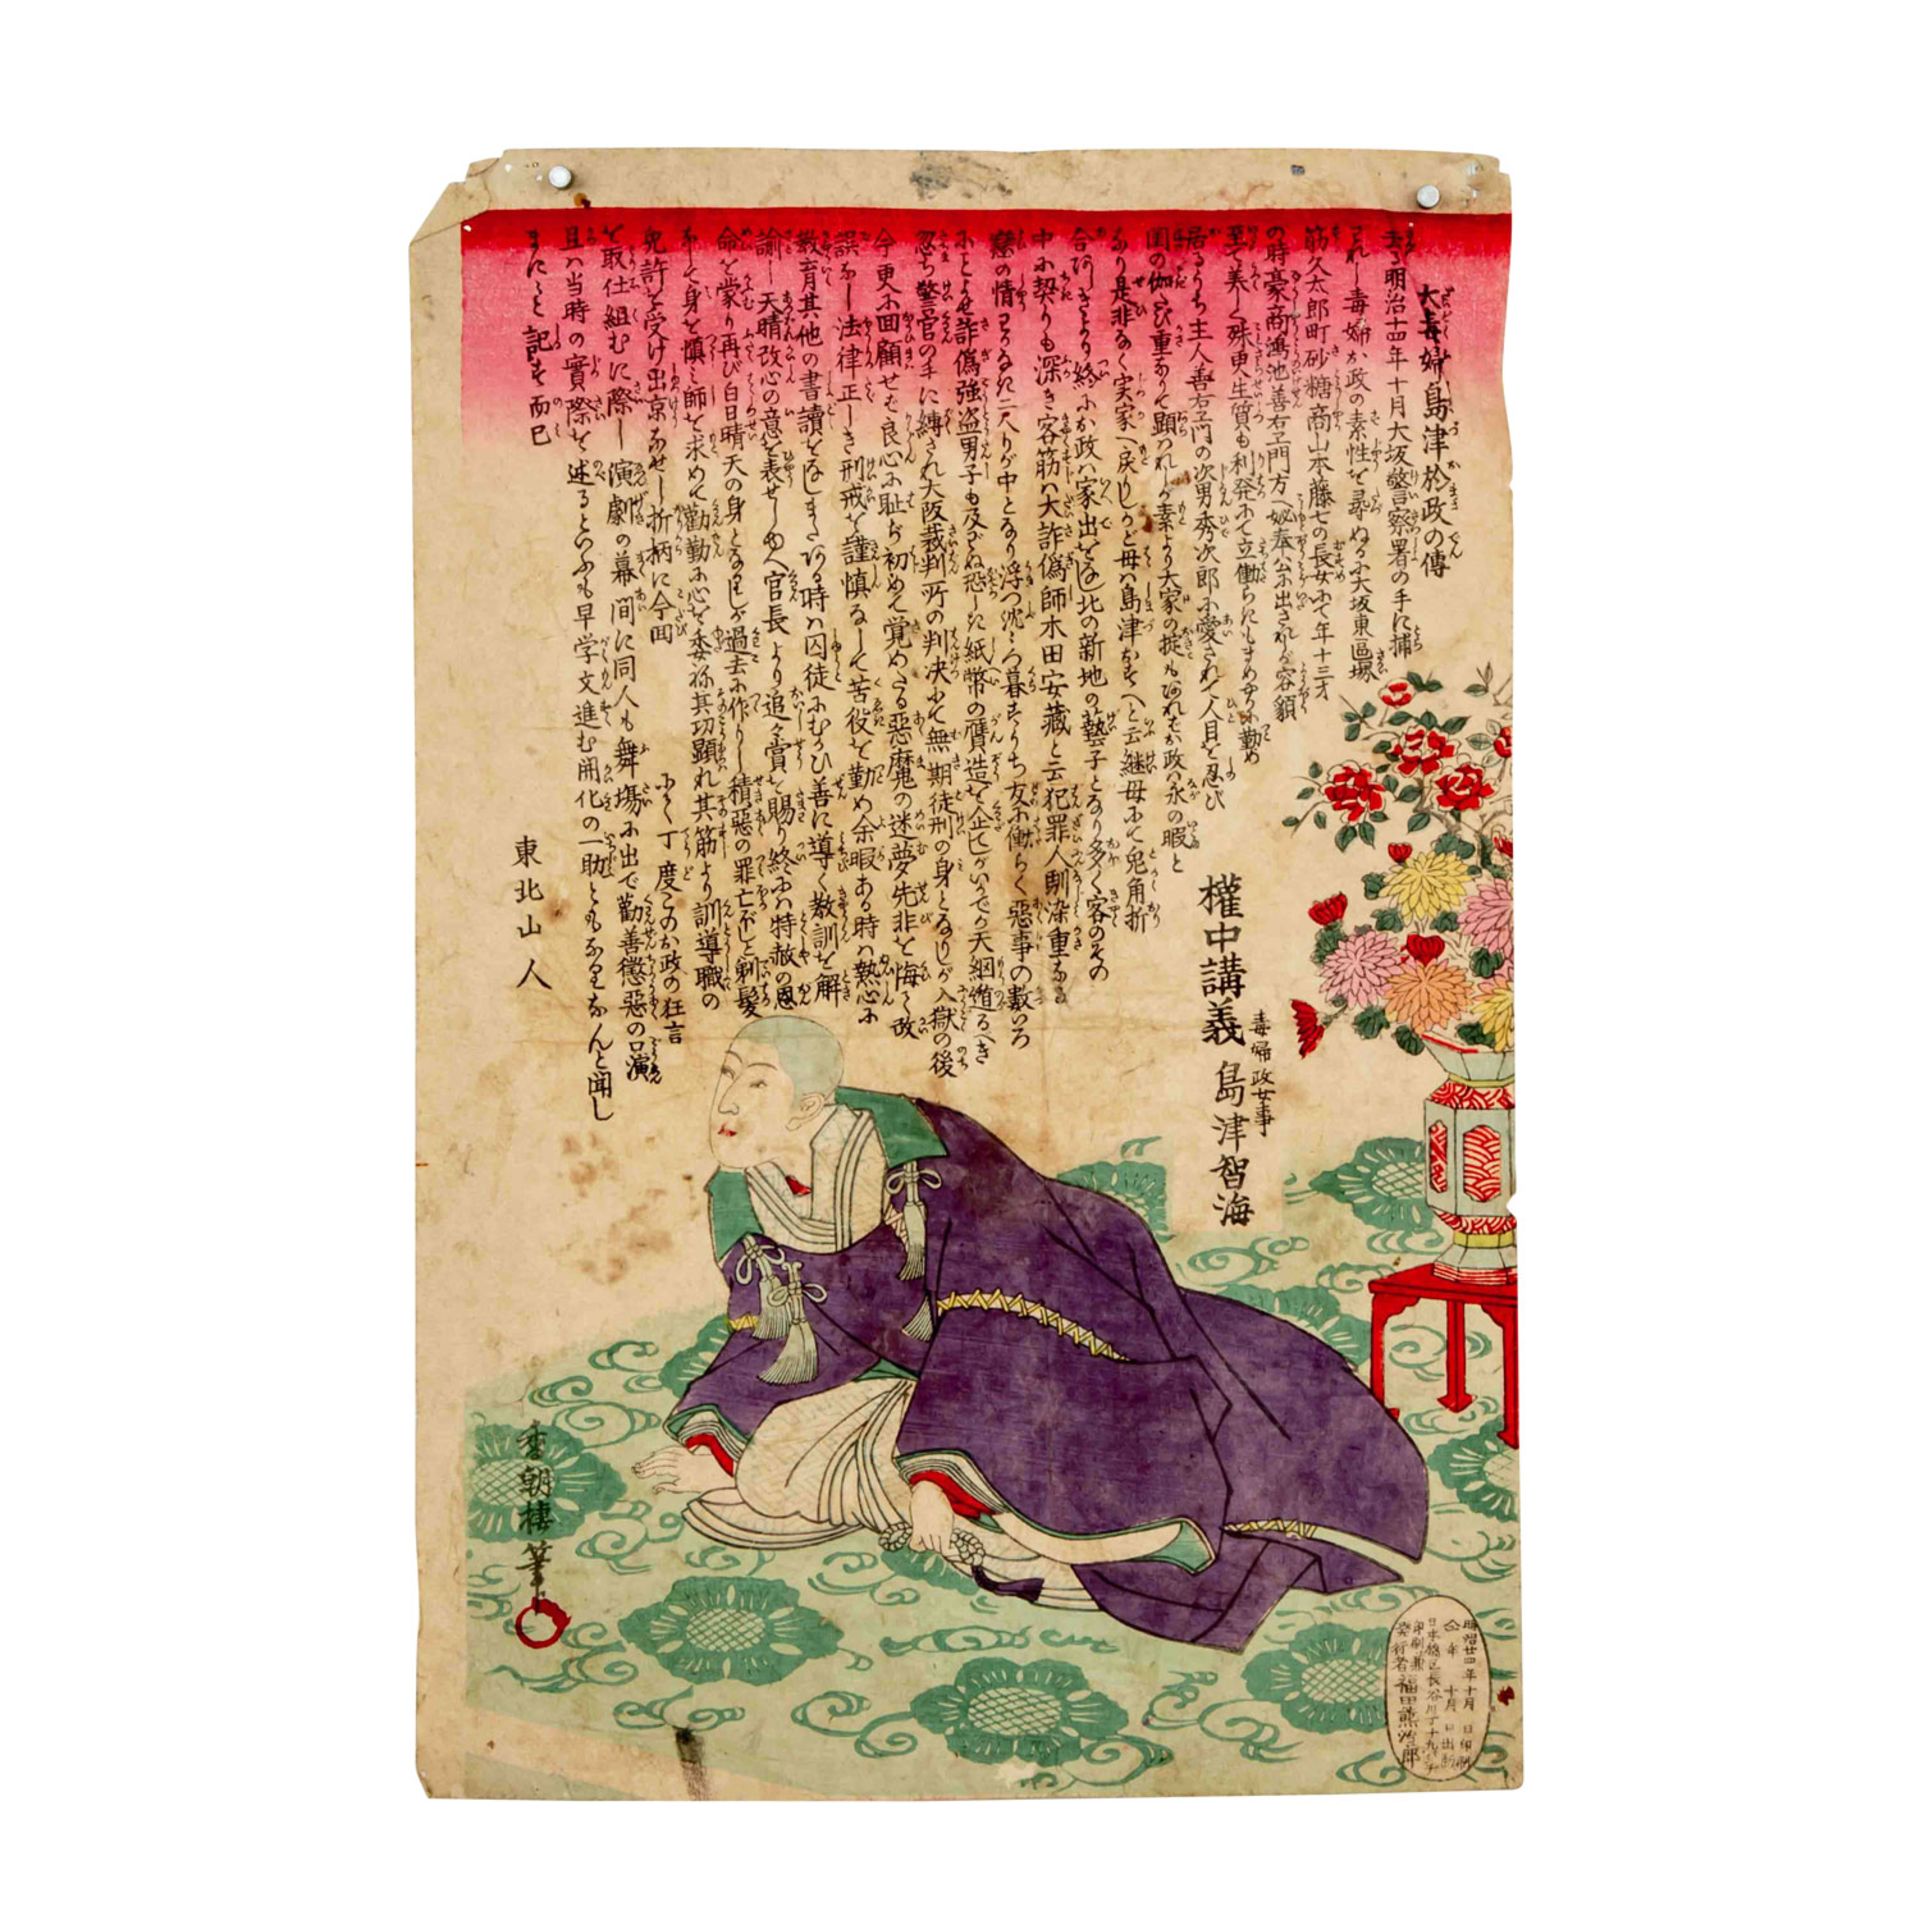 大毒婦島津於政の傳
去る明治十四年十月大坂警察署の手に捕
はれし毒婦お政の素性を尋ぬるに大坂東區塚
筋久太郎町砂糖商山本藤七の長女にて年十三才
の時豪商鴻池善右エ門方へ婢奉公に出されしが容顔
至て美しく殊更生質も利発にて立働らきもまめやかに勤め
居るうち主人善右エ門の次男秀次郎に愛されて人目を忍び
閨の伽たび重なりて顕はれしが素より大家の掟もあれバお政ハ永の暇と
なり是非なく実家へ戻りしかど母ハ島津おすへと云継母にて兎角折
合あしきより終にお政ハ家出をなし北の新地の藝子となり多くの客のその
中に契りも深き客筋ハ大詐偽師木田安藏と云犯罪人馴染重なる
戀の情
二人りが中となり浮つ沈みつ暮すうち友に働らく惡事の數いろ
詐偽強盗男子も及ばぬ恐しき紙幣の贋造を企てしがいかでか天網遁るべき
忽ち警官の手に縛され大阪裁判所の判决にて無期徒刑の身となりしが入獄の後
今更に回顧せバ良心に耻ぢ初めて覚めたる惡魔の迷夢先非を悔て改
誤なし法律正しき刑戒を謹慎なして苦役を勤め余暇ある時ハ熱心に
教育其他の書讀をなしまたある時ハ囚徒にむかひ善に導く教訓を解
諭し天晴改心の意を表せしゆへ官長より追々賞を賜り終にハ特赦の恩
命を蒙り再び白日晴天の身となりしが過去に作りし積惡の罪亡ぼしと剃髪
なして身を愼み師を求めて勸勤に心を委ね其功顕れ其筋より訓導職の
免許を受け出京なせし折柄に今回
丁度このお政の狂言
を取仕組むに際し演劇の幕間に同人も舞塲に出で勸善懲惡の口演
且ハ当時の實際を述るといふも早学文進む開化の一助ともならなんと聞し
まにまに記す而已
東北山人
權中講義
毒婦政女事
島津智海
香朝楼筆
明治廿四年十月 日印刷
仝年 十月 日出版
日本橋区長谷川丁十九バンチ
印刷兼
発行者 福田熊治郎